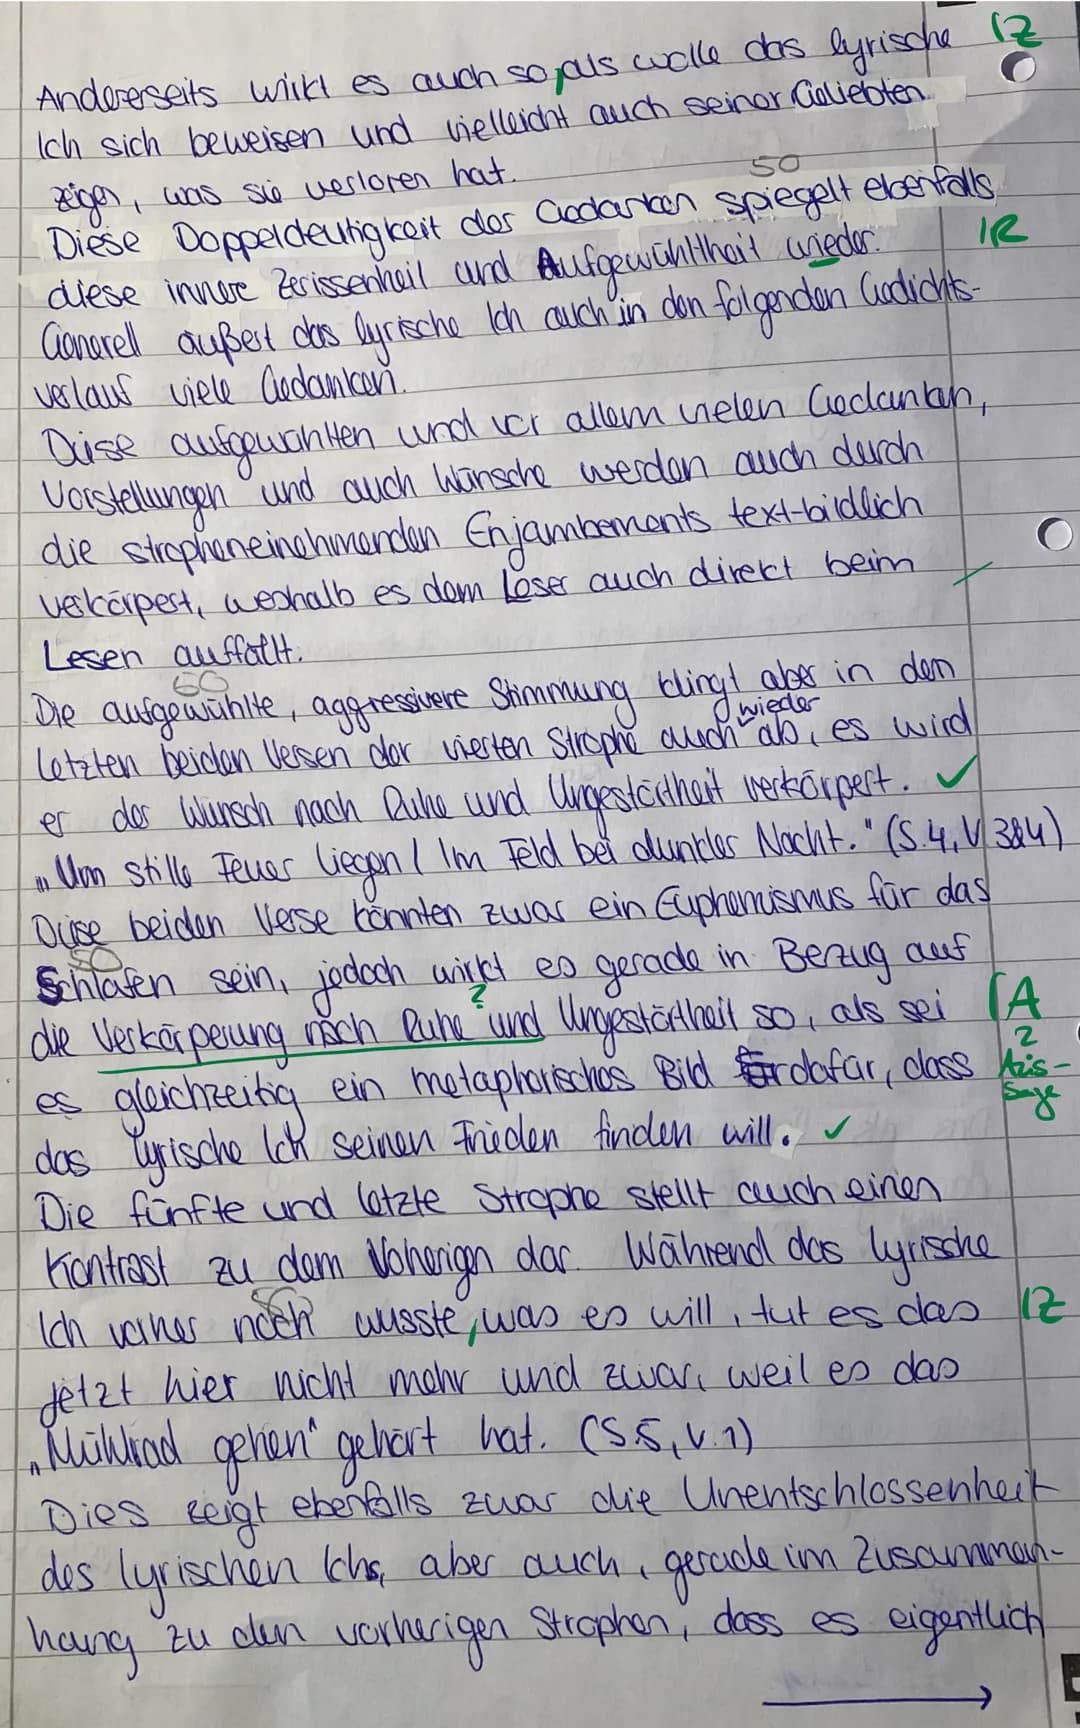 Andererseits wirkt es auch so, als wolle das lyrische IZ
Ich sich beweisen und vielleicht auch seiner Geliebten
zeigen, was sie verloren hat.
50
Diese Doppeldeutigkeit der Gedanken spiegelt ebenfalls
diese innere Zerissenheit und Aufgewühltheit wieder. IR
Generell äußert das lyrische Ich auch in den folgenden Gedichts-
verlauf viele Gedanken.
Diese aufgewühlten und vor allem vielen Gedanken,
Vorstellungen und auch Wünsche werden auch durch
die stropheneinehmenden Enjambements text-bildlich
verkörpert, weshalb es dem Leser auch direkt beim
Lesen auffällt.
60
Die aufgewühlte, aggressivere Stimmung klingt aber in den
letzten beiden Versen der vierten Strophe auch wieder ab, es wird
er der Wunsch nach Ruhe und Ungestörtheit verkörpert. ✓
„Um stille Feuer liegen / Im Feld bei dunkler Nacht." (S.4, V.3&4)
Diese beiden Verse könnten zwar ein Euphemismus für das
Schlafen sein, jedoch wirkt es gerade in Bezug auf
die Verkörperung nach Ruhe und Ungestörtheit so, als sei A
? 2
es gleichzeitig ein metaphorisches Bild dafür, dass
das lyrische Ich seinen Frieden finden will. ✓
Die fünfte und letzte Strophe stellt auch einen
Kontrast zu dem Voherigen dar. Während das lyrische
Ich vorher noch wusste, was es will, tut es das IZ
jetzt hier nicht mehr und zwar, weil es das
„Mühlrad gehen" gehört hat. (S.5, V.1)
Dies zeigt ebenfalls zwar die Unentschlossenheit
des lyrischen Ichs, aber auch, gerade im Zusammen-
hang zu den vorherigen Strophen, dass es eigentlich